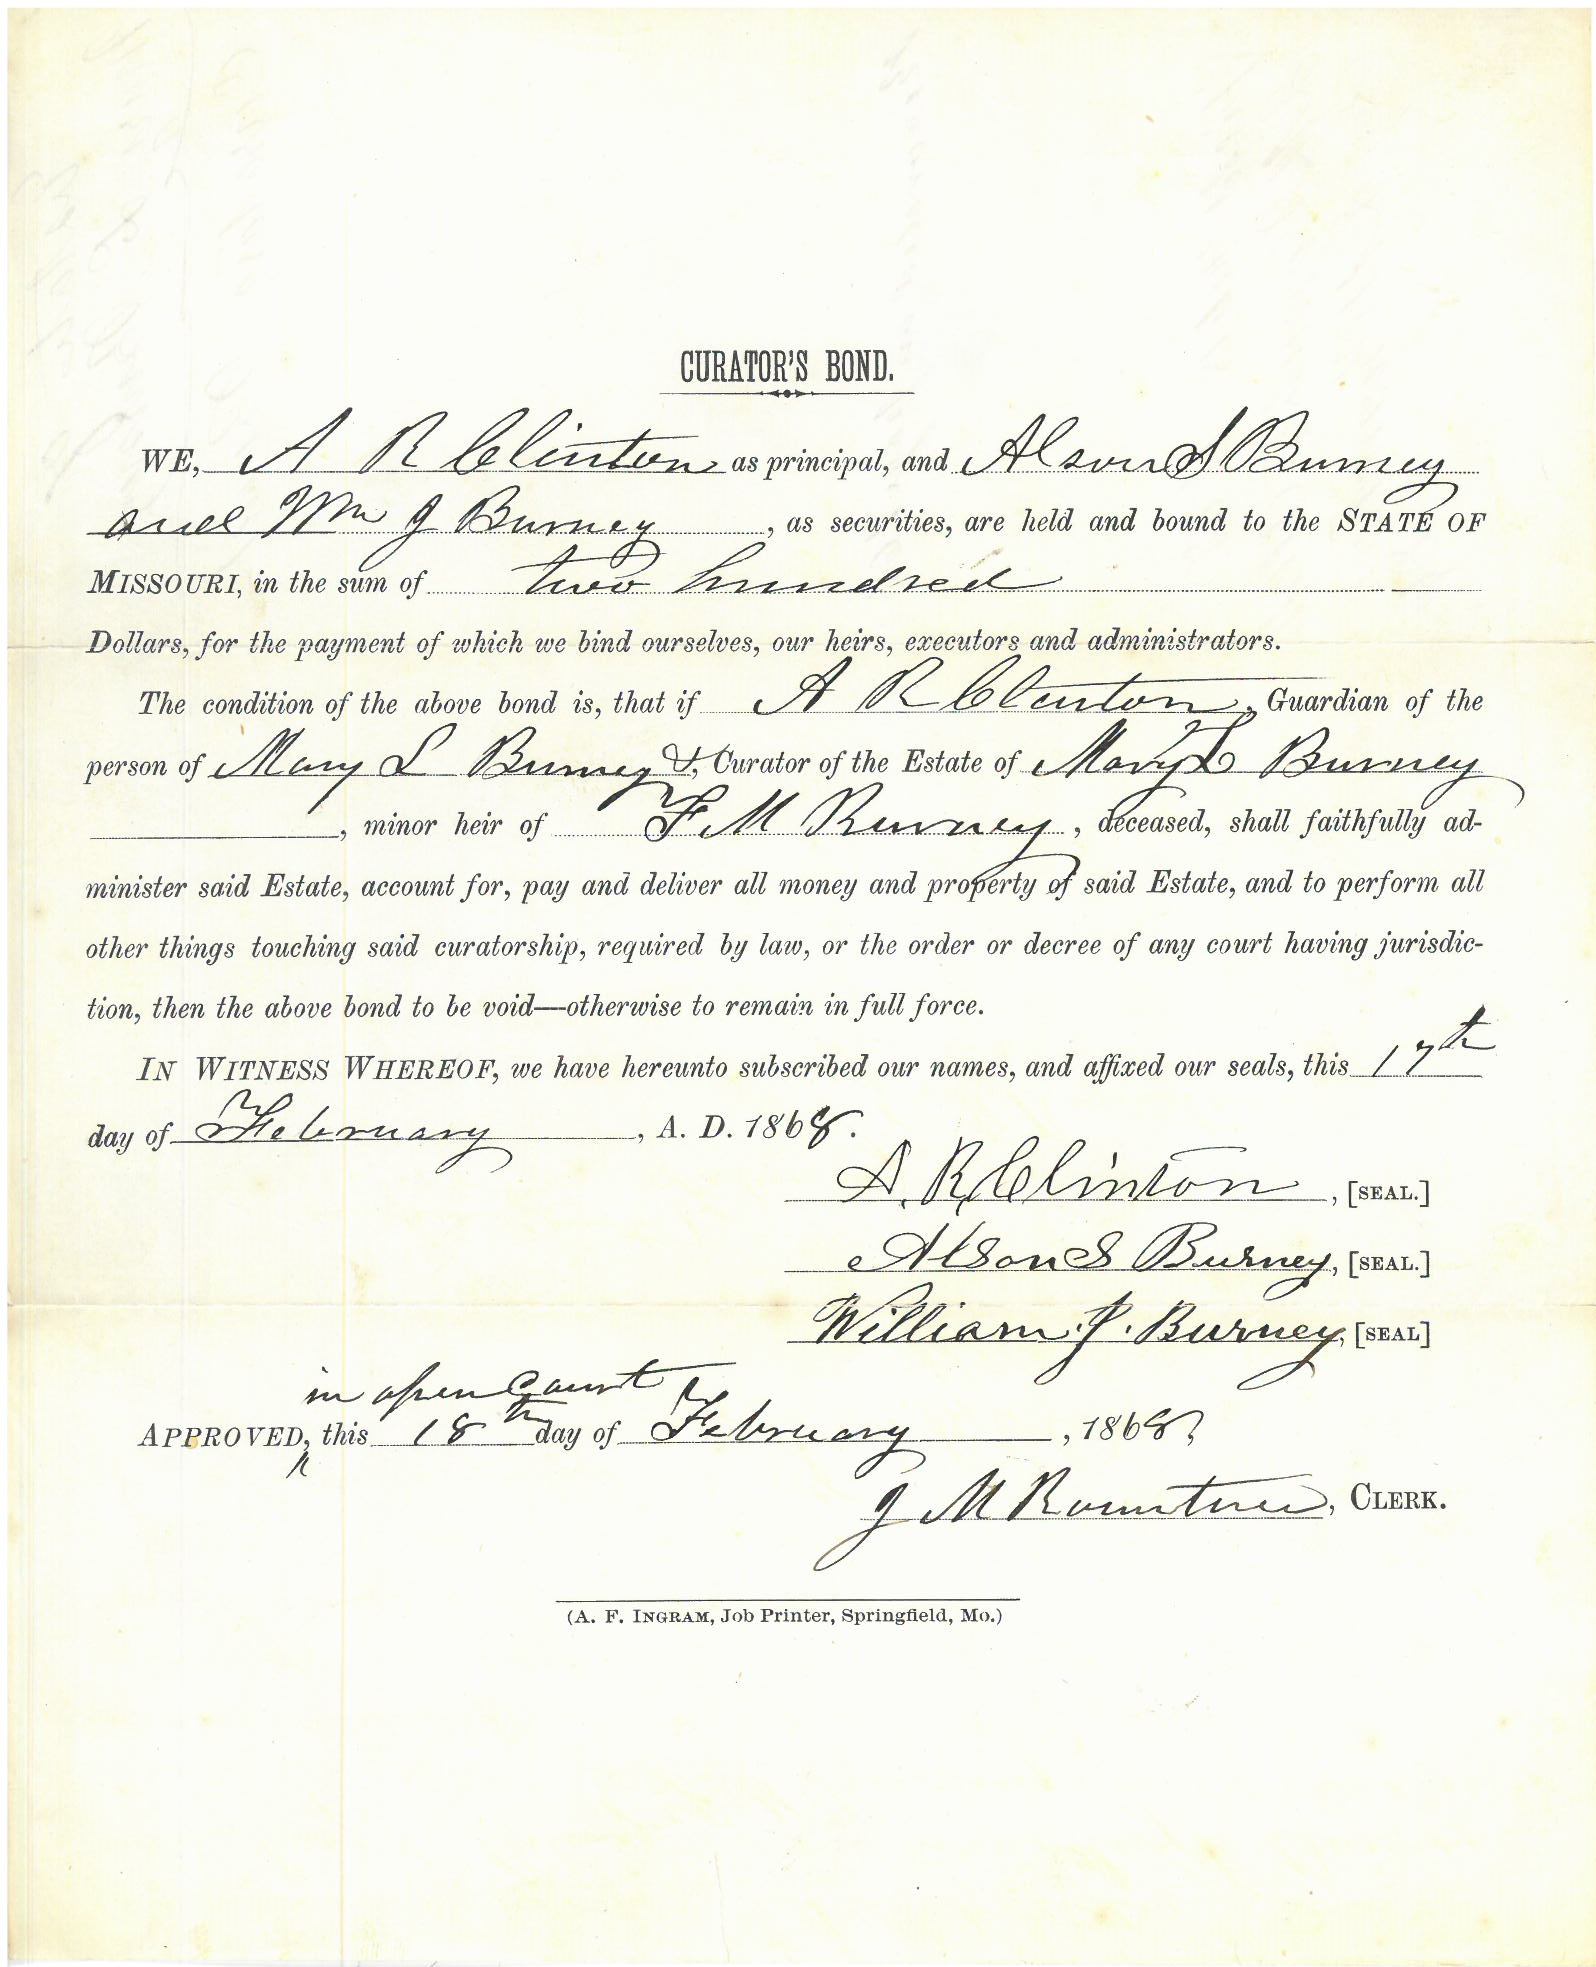 CURATOR'S BOND.
WE, A R Clinton as principal, and Alson S Burney
and Wm J Burney, as securities, are held and bound to the STATE OF
MISSOURI, in the sum of two hundred
Dollars, for the payment of which we bind ourselves, our heirs, executors and administrators.
The condition of the above bond is, that if A R Clinton, Guardian of the
person of Mary L Burney &, Curator of the Estate of Mary L Burney
, minor heir of F M Burney, deceased, shall faithfully ad-
minister said Estate, account for, pay and deliver all money and property of said Estate, and to perform all
other things touching said curatorship, required by law, or the order or decree of any court having jurisdic-
tion, then the above bond to be void—otherwise to remain in full force.
IN WITNESS WHEREOF, we have hereunto subscribed our names, and affixed our seals, this 17th
day of February, A. D. 1868.
A. R. Clinton, [SEAL.]
Alson S Burney, [SEAL.]
William J. Burney, [SEAL]
in open Court
APPROVED, this 18th day of February, 1868,
J M Rountree, CLERK.
(A. F. INGRAM, Job Printer, Springfield, Mo.)